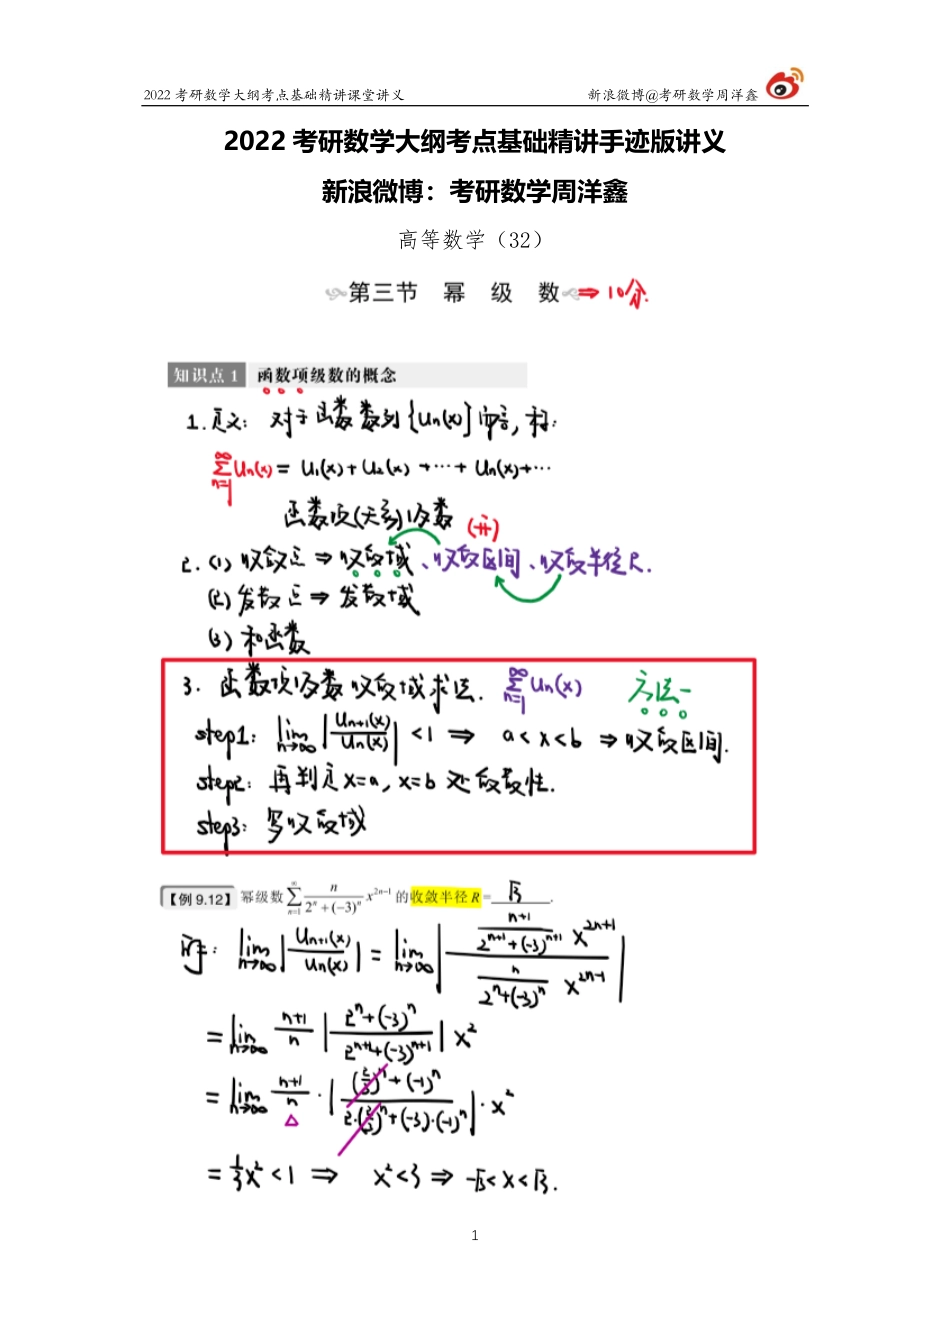 2022 考研数学大纲考点基础精讲课堂讲义 新浪微博@考研数学周洋鑫
2022 考研数学大纲考点基础精讲手迹版讲义
新浪微博：考研数学周洋鑫
高等数学（32）
第三节 幂 级 数 ⇒ 10分.
知识点 1 函数项级数的概念
1. 定义: 对于函数数列 {Un(x)} 而言, 称:
∑_{n=1}^{∞} Un(x) = U₁(x) + U₂(x) + ⋯ + Un(x) + ⋯
函数项(无穷)级数
2. (1) 收敛点 ⇒ 收敛域、(开)收敛区间、收敛半径R.
(2) 发散点 ⇒ 发散域
(3) 和函数
3. 函数项级数收敛域求法. ∑_{n=1}^{∞} Un(x) 方法一
step1: lim_{n→∞} |Un+1(x)/Un(x)| < 1 ⇒ a < x < b ⇒ 收敛区间.
step2: 再判定 x=a, x=b 处敛散性.
step3: 写收敛域
【例 9.12】 幂级数 ∑_{n=1}^{∞} n/(2^n+(-3)^n) x^{2n-1} 的收敛半径 R = √3 .
解: lim_{n→∞} |Un+1(x)/Un(x)| = lim_{n→∞} |((n+1)/(2^{n+1}+(-3)^{n+1}) x^{2n+1})/(n/(2^n+(-3)^n) x^{2n-1})|
= lim_{n→∞} (n+1)/n |(2^n+(-3)^n)/(2^{n+1}+(-3)^{n+1})| x²
= lim_{n→∞} (n+1)/n · |((2/3)^n+(-1)^n)/(2·(2/3)^n+(-3)·(-1)^n)| · x²
= 1/3 x² < 1 ⇒ x² < 3 ⇒ -√3 < x < √3.
1